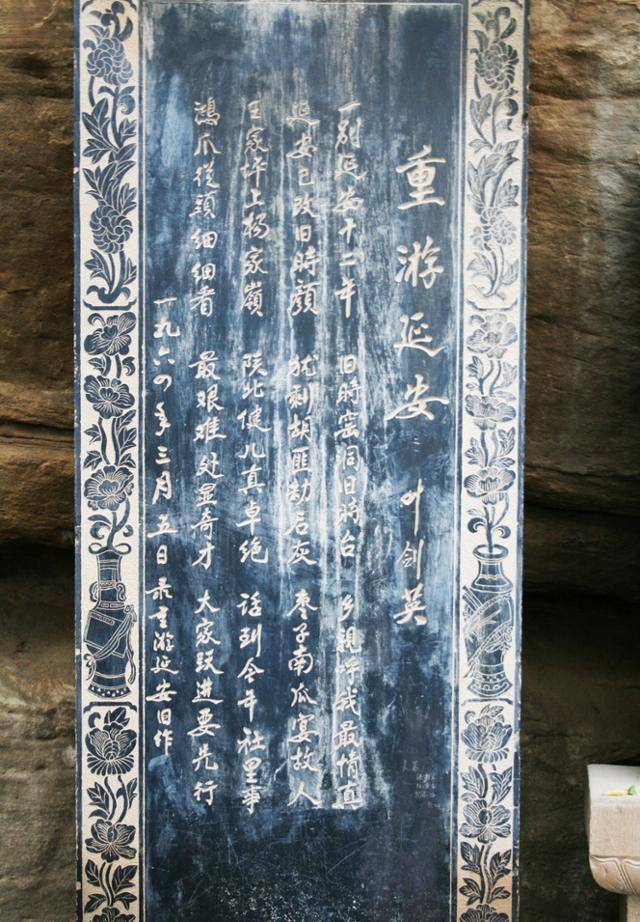 重游延安 叶剑英
一别延安十二年 旧時窑洞旧時台 乡親呼我最情真
延安已改旧時顔 犹剩胡匪劫后灰 枣子南瓜宴故人
王家坪上杨家嶺 陕北健儿真卓绝 话到今年社里事
鴻爪從頭細細看 最艰难处显奇才 大家跃进要先行
一九六四年三月五日录重游延安旧作